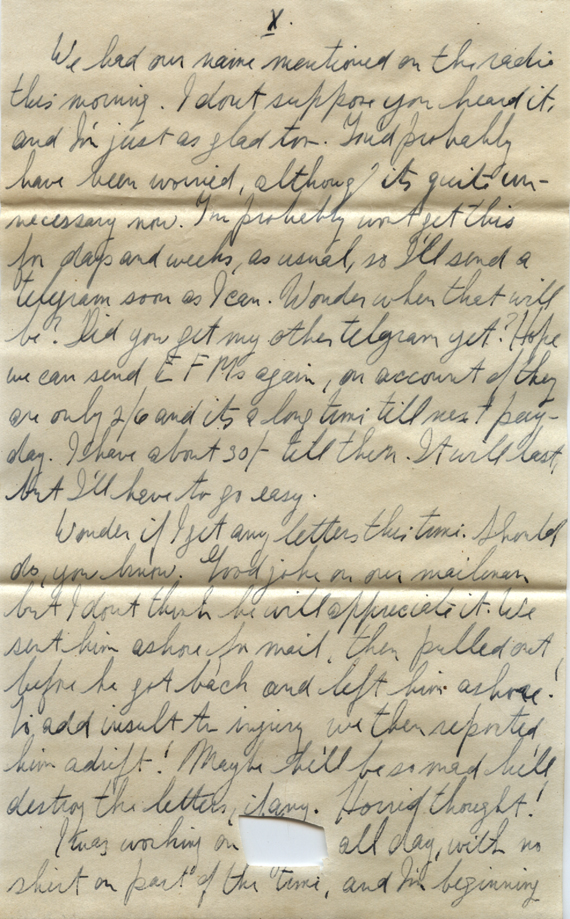 X.
We had our name mentioned on the radio
this morning. I dont suppose you heard it,
and I'm just as glad too. You'd probably
have been worried, although its quite un-
necessary now. I'm probably wont get this
for days and weeks, as usual, so I'll send a
telegram soon as I can. Wonder when that will
be? Did you get my other telgram yet? Hope
we can send EFMs again, on account of they
are only 2/6 and its a long time till next pay-
day. I have about 30/- till then. It will last,
but I'll have to go easy.
Wonder if I get any letters this time. Should
do, you know. Good joke on our mailman
but I dont think he will appreciate it. We
sent him ashore for mail, then pulled out
before he got back and left him ashore!
To add insult to injury we then reported
him adrift! Maybe he'll be so mad he'll
destroy the letters, if any. Horrid thought!
I was working on all day, with no
shirt on part of the time, and I'm beginning